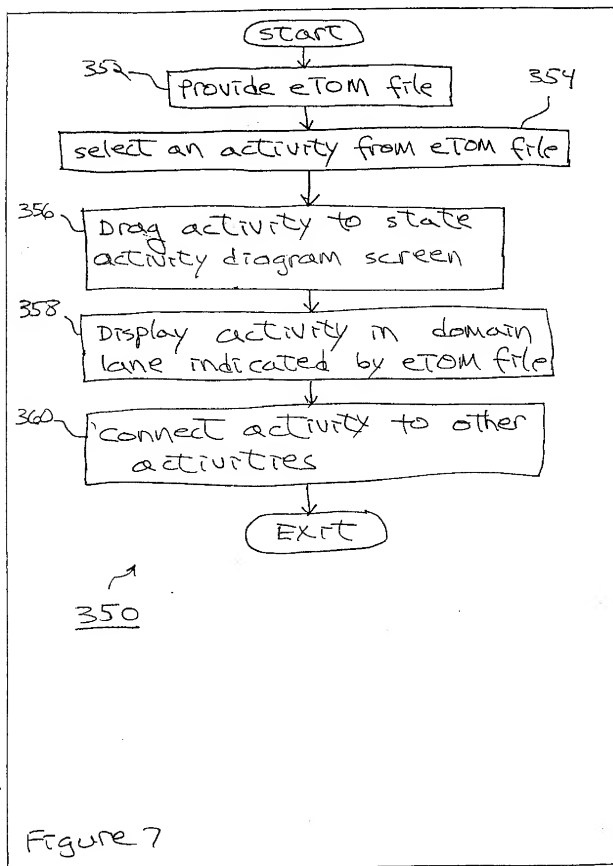 start
352
Provide eTOM file
354
select an activity from eTOM file
356
Drag activity to state
activity diagram screen
358
Display activity in domain
lane indicated by eTOM file
360
connect activity to other
activities
Exit
350
Figure 7